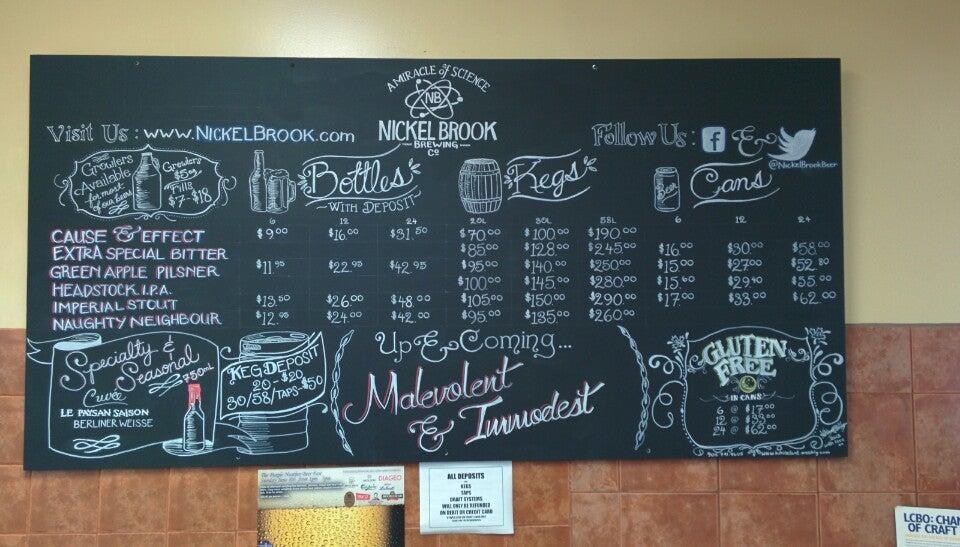 A MIRACLE of SCIENCE
NB
NICKEL BROOK
BREWING
CO
Visit Us : www.NICKELBROOK.com
Follow Us : f &
@NickelBrookBeer
Growlers
Available
for most
of our beers
Growlers
$5
Fills
$7-$18
Bottles
WITH DEPOSIT
Kegs
Beer
Cans
6 12 24 20L 30L 58L 6 12 24
CAUSE & EFFECT $9.00 $16.00 $31.50 $70.00 $100.00 $190.00
EXTRA SPECIAL BITTER $85.00 $128.00 $245.00 $16.00 $30.00 $58.00
GREEN APPLE PILSNER $11.95 $22.95 $42.95 $95.00 $140.00 $260.00 $15.00 $27.00 $52.80
HEADSTOCK I.P.A. $100.00 $145.00 $280.00 $15.60 $29.40 $55.00
IMPERIAL STOUT $13.50 $26.00 $48.00 $105.00 $150.00 $290.00 $17.00 $33.00 $62.00
NAUGHTY NEIGHBOUR $12.95 $24.00 $42.00 $95.00 $135.00 $260.00
Specialty &
Seasonal
750ml
Cuvée
LE PAYSAN SAISON
BERLINER WEISSE
KEG DEPOSIT
20 - $20
30/58/TAPS - $50
Up & Coming...
Malevolent
& Immodest
GLUTEN
FREE
IN CANS
6 @ $17.00
12 @ $33.00
24 @ $62.00
DIAGEO
ALL DEPOSITS
KEGS
TAPS
DRAFT SYSTEMS
WILL ONLY BE REFUNDED
ON DEBIT OR CREDIT CARD
LCBO: CHAN
OF CRAFT